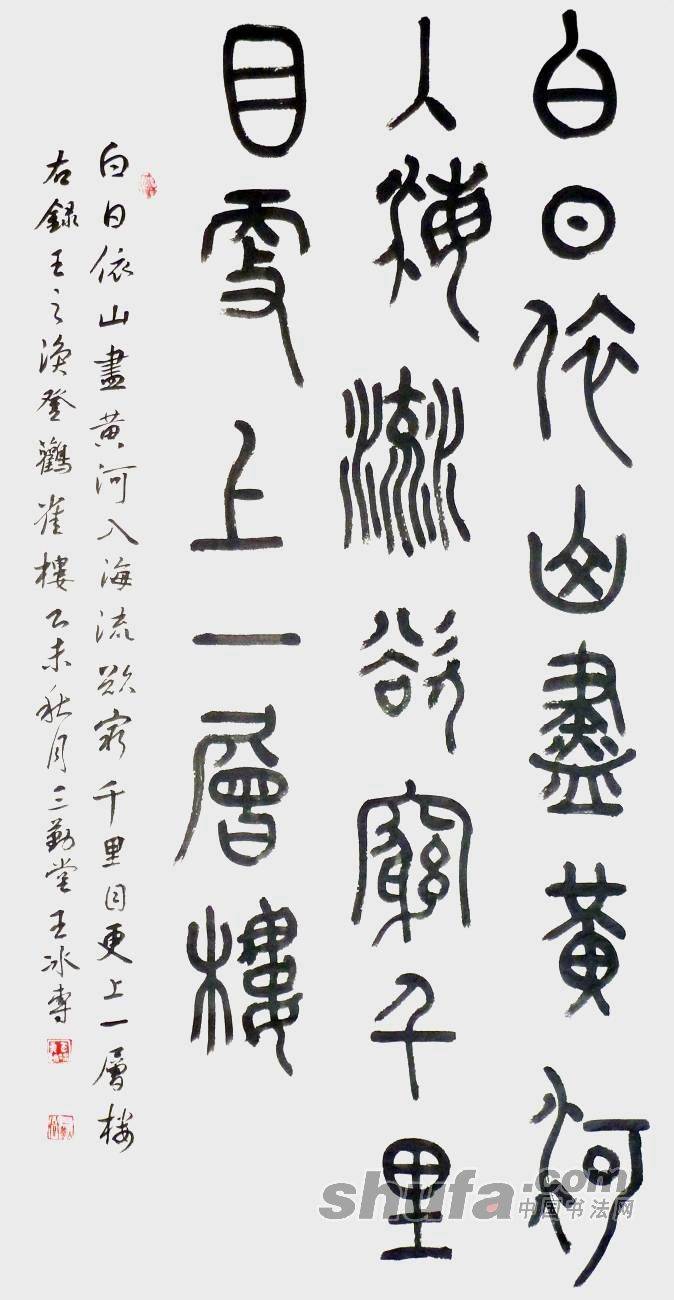 白日依山盡黃河
入海流欲窮千里
目更上一層樓
白日依山盡黄河入海流欲窮千里目更上一層楼
右錄王之渙登鸛雀樓乙未秋月三勤堂王冰書
shufa.com
中国书法网